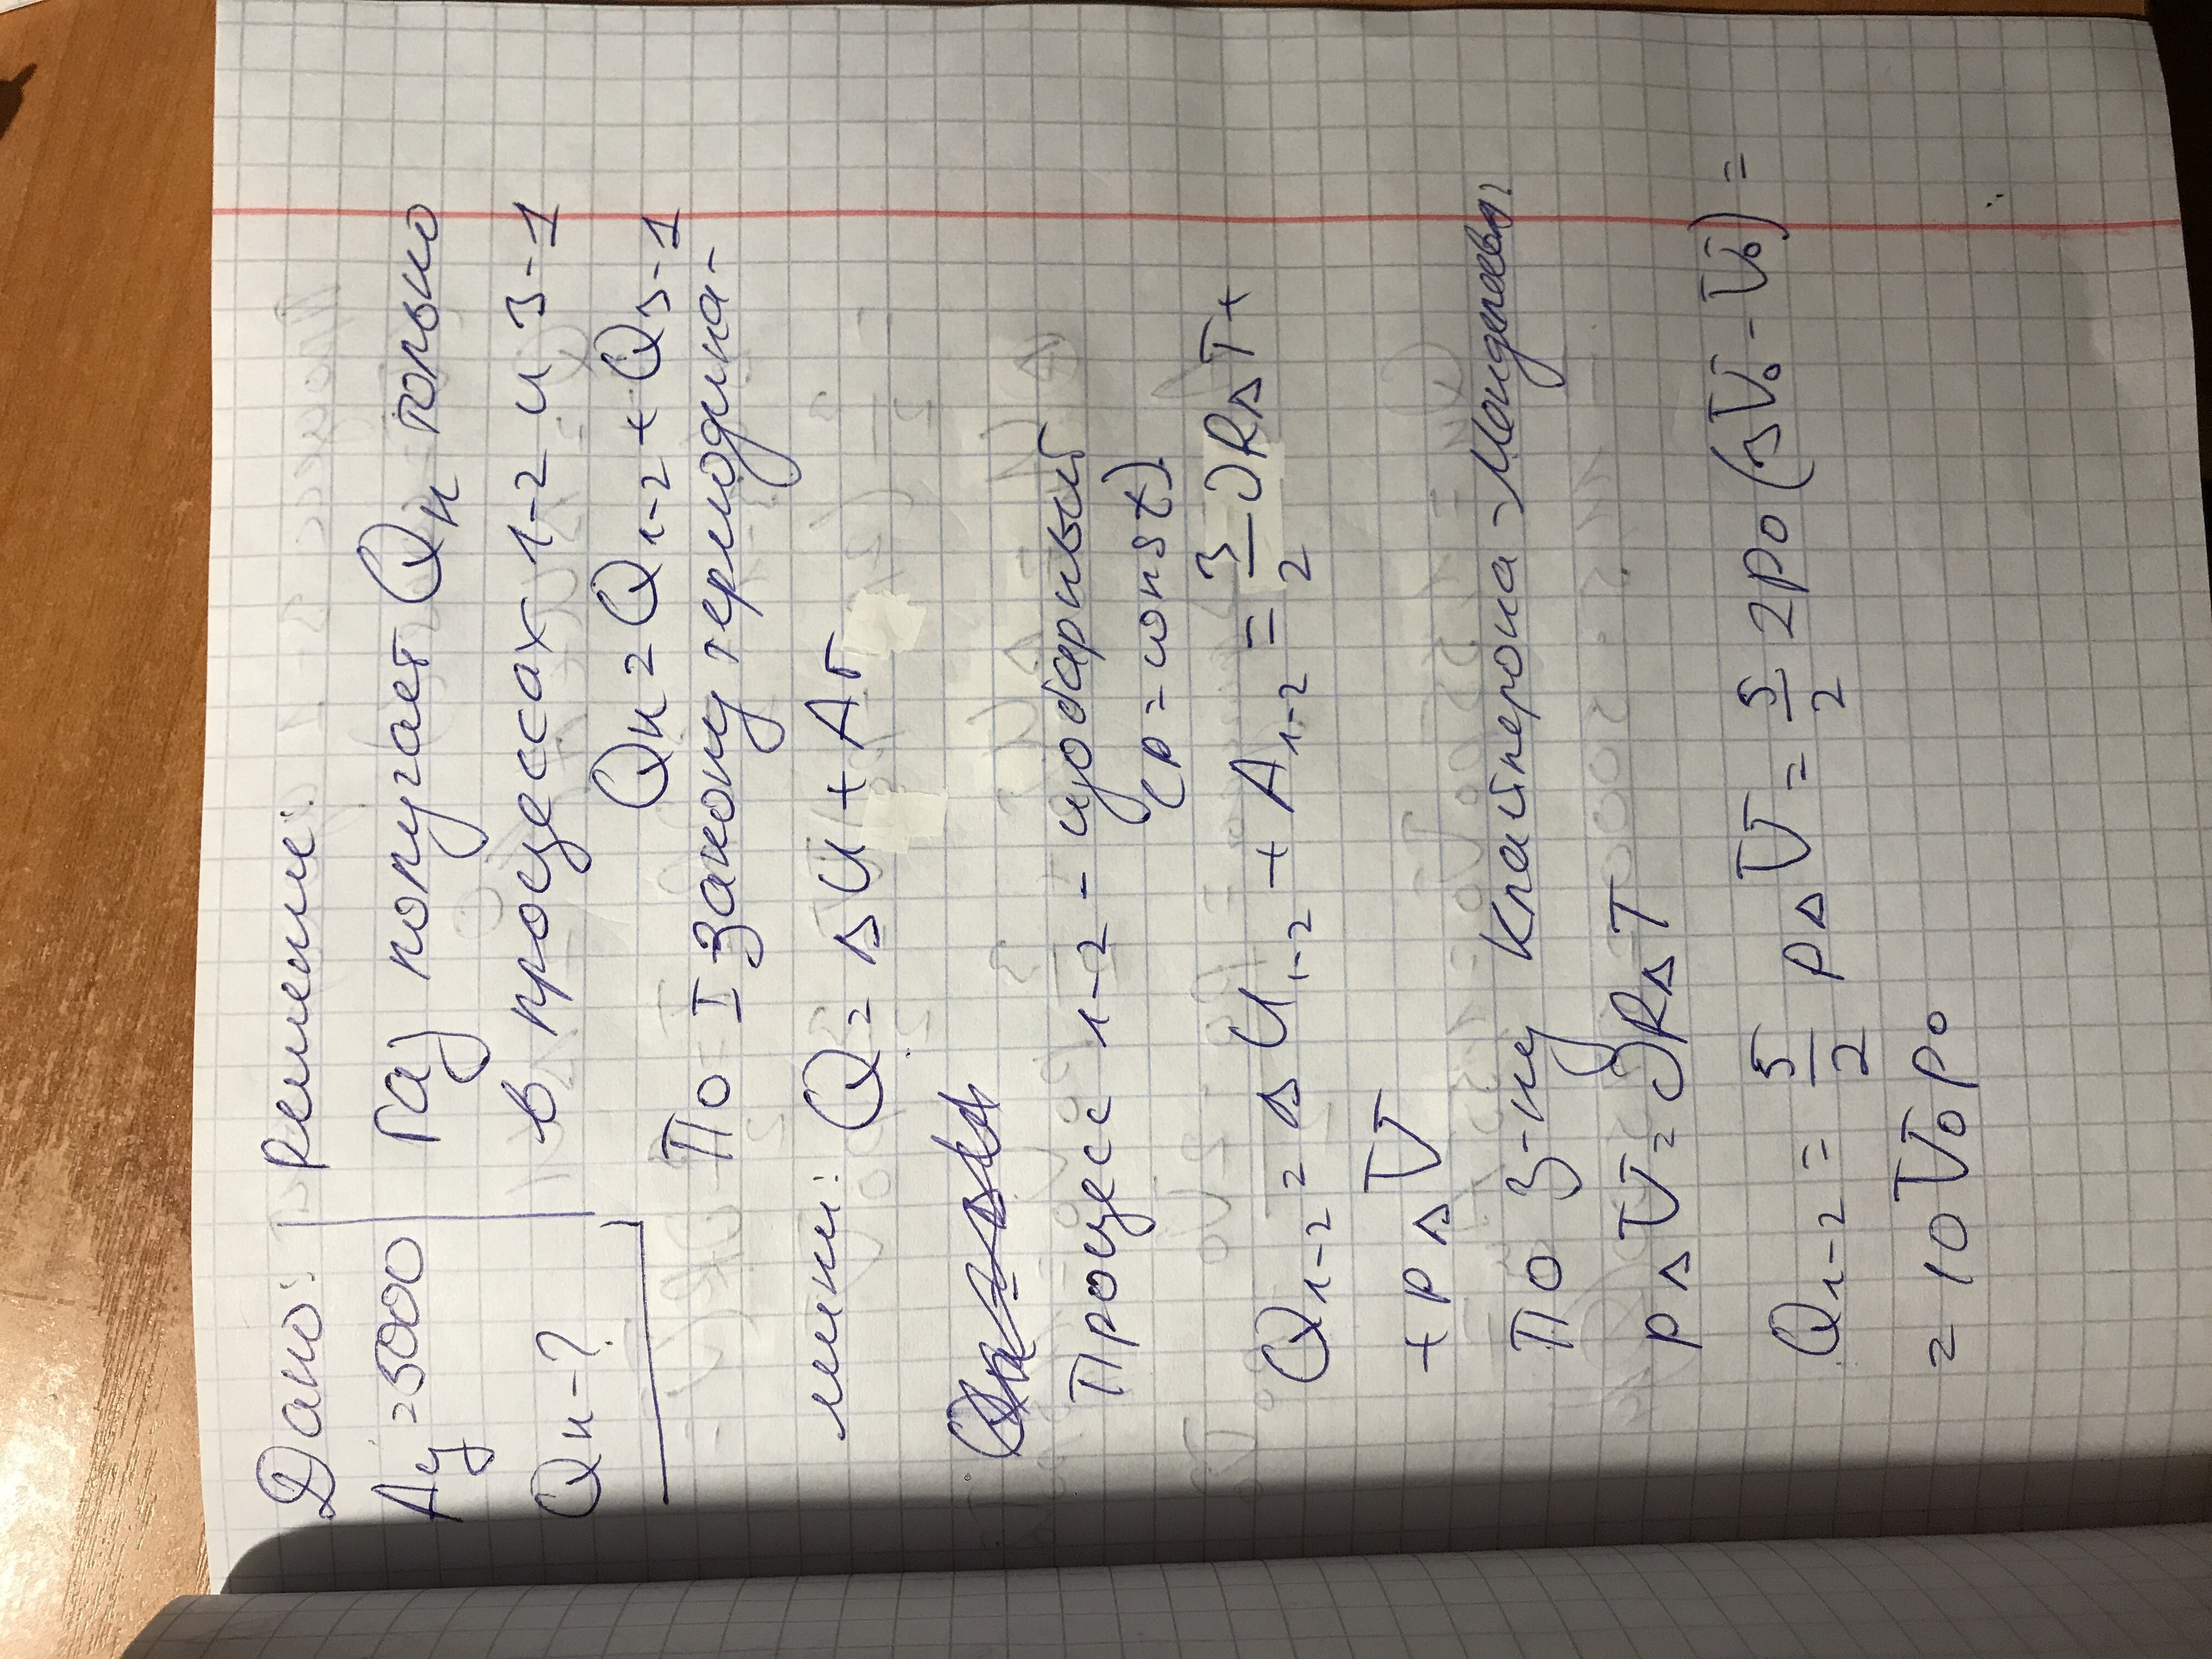 Дано: Решение:
Aц = 5000 Газ получает Qн только
Qн - ? в процессах 1-2 и 3-1
Qн = Q1-2 + Q3-1
По I закону термодина-
мики: Q = ΔU + Aг
Процесс 1-2 - изобарный
(p = const).
Q1-2 = ΔU1-2 + A1-2 = 3/2 υRΔT +
+ pΔV
По з-ну Клайперона-Менделеева:
pΔV = υRΔT
Q1-2 = 5/2 pΔV = 5/2 2p0 (3V0 - V0) =
= 10V0p0